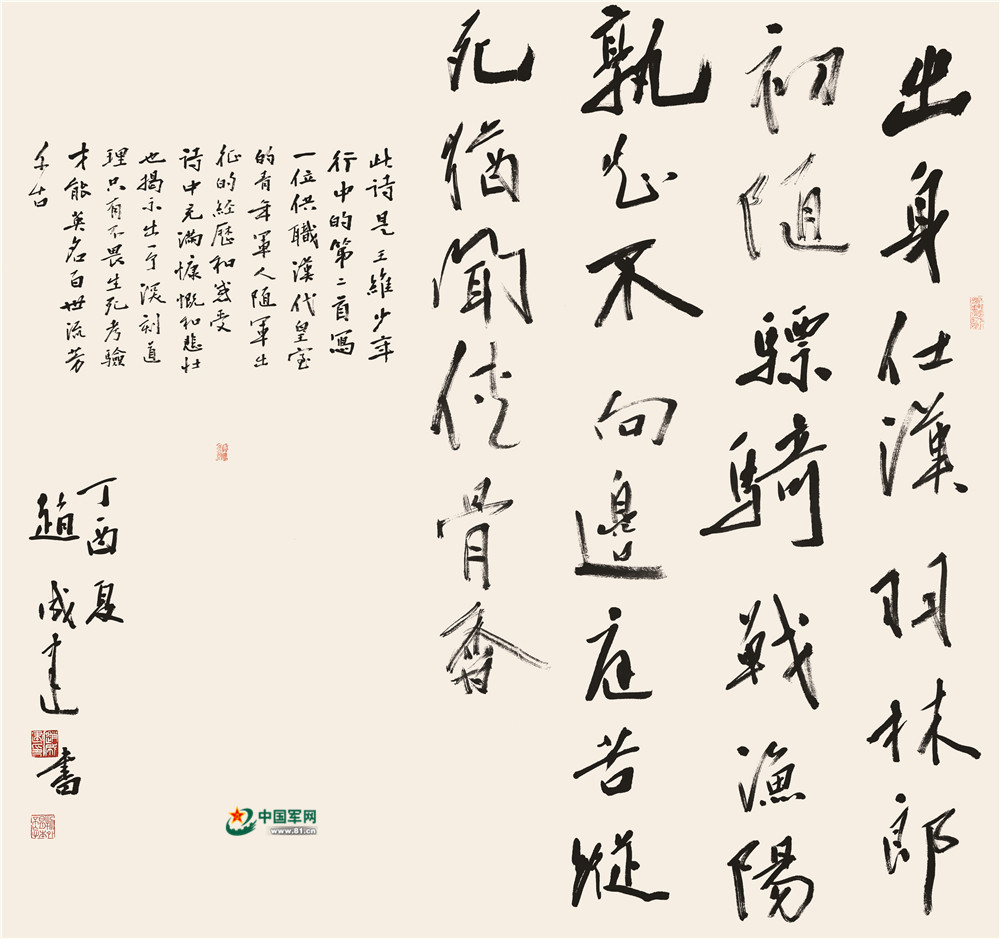 出身仕漢羽林郎
初随驃騎戰漁陽
孰知不向邊庭苦縱
死猶聞俠骨香
此诗是王維少年
行中的第二首寫
一位供職漢代皇室
的青年軍人随軍出
征的經歷和感受
诗中充滿慷慨和悲壮
也揭示出一个深刻道
理只有不畏生死考驗
才能英名百世流芳
千古
丁酉夏
趙成建書
中国军网
www.81.cn